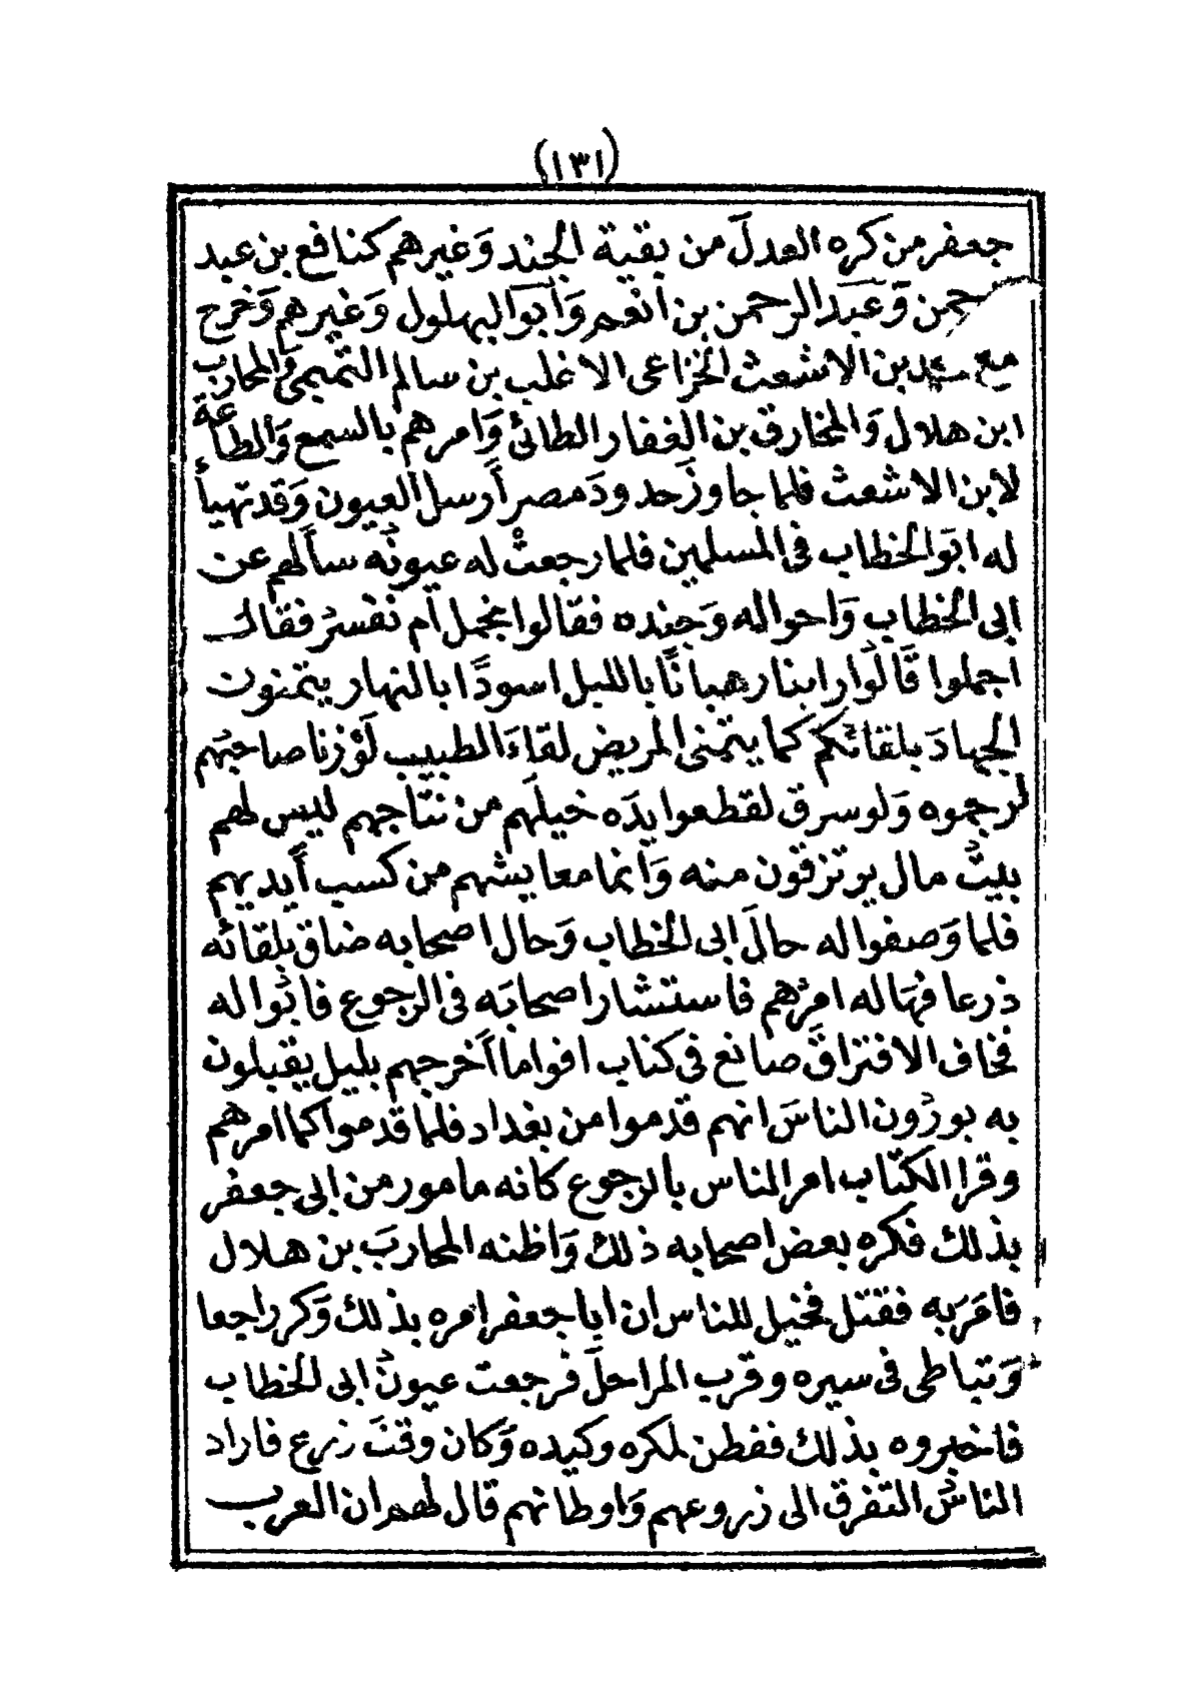 (١٣١)
جعفر من كره العدلَ من بقية الجند وَغيرهم كنافع بن عبد
حمن وَّعبَد الرحمن بن أنْعم وَأبوا البهلول وَغيرهم وَخرج
مع بن الاشعث الخزاعى الاغلب بن سالم التميمى وَالمحارب
ابن هلال وَالمخارق بن الغفار الطائى وَامرهمْ بالسمع وَالطاعة
لابن الاشعث فلما جاوزَ حدودَ مصر أَرسل العيون وَقد تهيأ
له ابوَ الخطاب فى المسلمين فلما رجعتْ له عيونُه سألهم عن
ابى الخطاب وَاحواله وَجنده فقالوا نجمل أم نفسرُ فقالـــ
اجملوا قَالُوا راينا رهبانًا بالليل اسودًا بالنهار يتمنون
الجهادَ بلقائكم كما يتمنى المريض لقاءَ الطبيب لَوْ زنا صاحبُهم
لرجموه وَلو سرق لقطعوا يدَه خيلَهم من نتاجهم ليس لهم
بيتُ مال يرتزقون منه وَانما معايشهم من كسب أَيديهم
فلما وَصفوا له حالَ ابى الخطاب وَحال اصحابه ضاق بلقائه
ذرعا فهَاله امرُهم فاستشار اصحابَه فى الرجوع فابُوا له
فخاف الافتراقَ صانع فى كتاب اقواما أَخرجهم بليل يقبلون
به يورُون الناسَ انهم قدموا من بغداد فلما قدموا كما امرهم
وقرا الكتاب امر الناس بالرجوع كانه مامور من ابى جعفر
بذلك فكره بعض اصحابه ذلك وَاظنه المحاربَ بن هلال
فامَر به فقتل فخيل للناس ان ابا جعفر امره بذلك وَكر راجعا
وَتباطى فى سيره وقرب المراحلَ فرجعت عيونُ ابى الخطاب
فاخبروه بذلك ففطن لمكره وكيده وَكان وقتَ زرع فاراد
الناسُ التفرق الى زروعهم وَاوطانهم قال لهم ان العرب